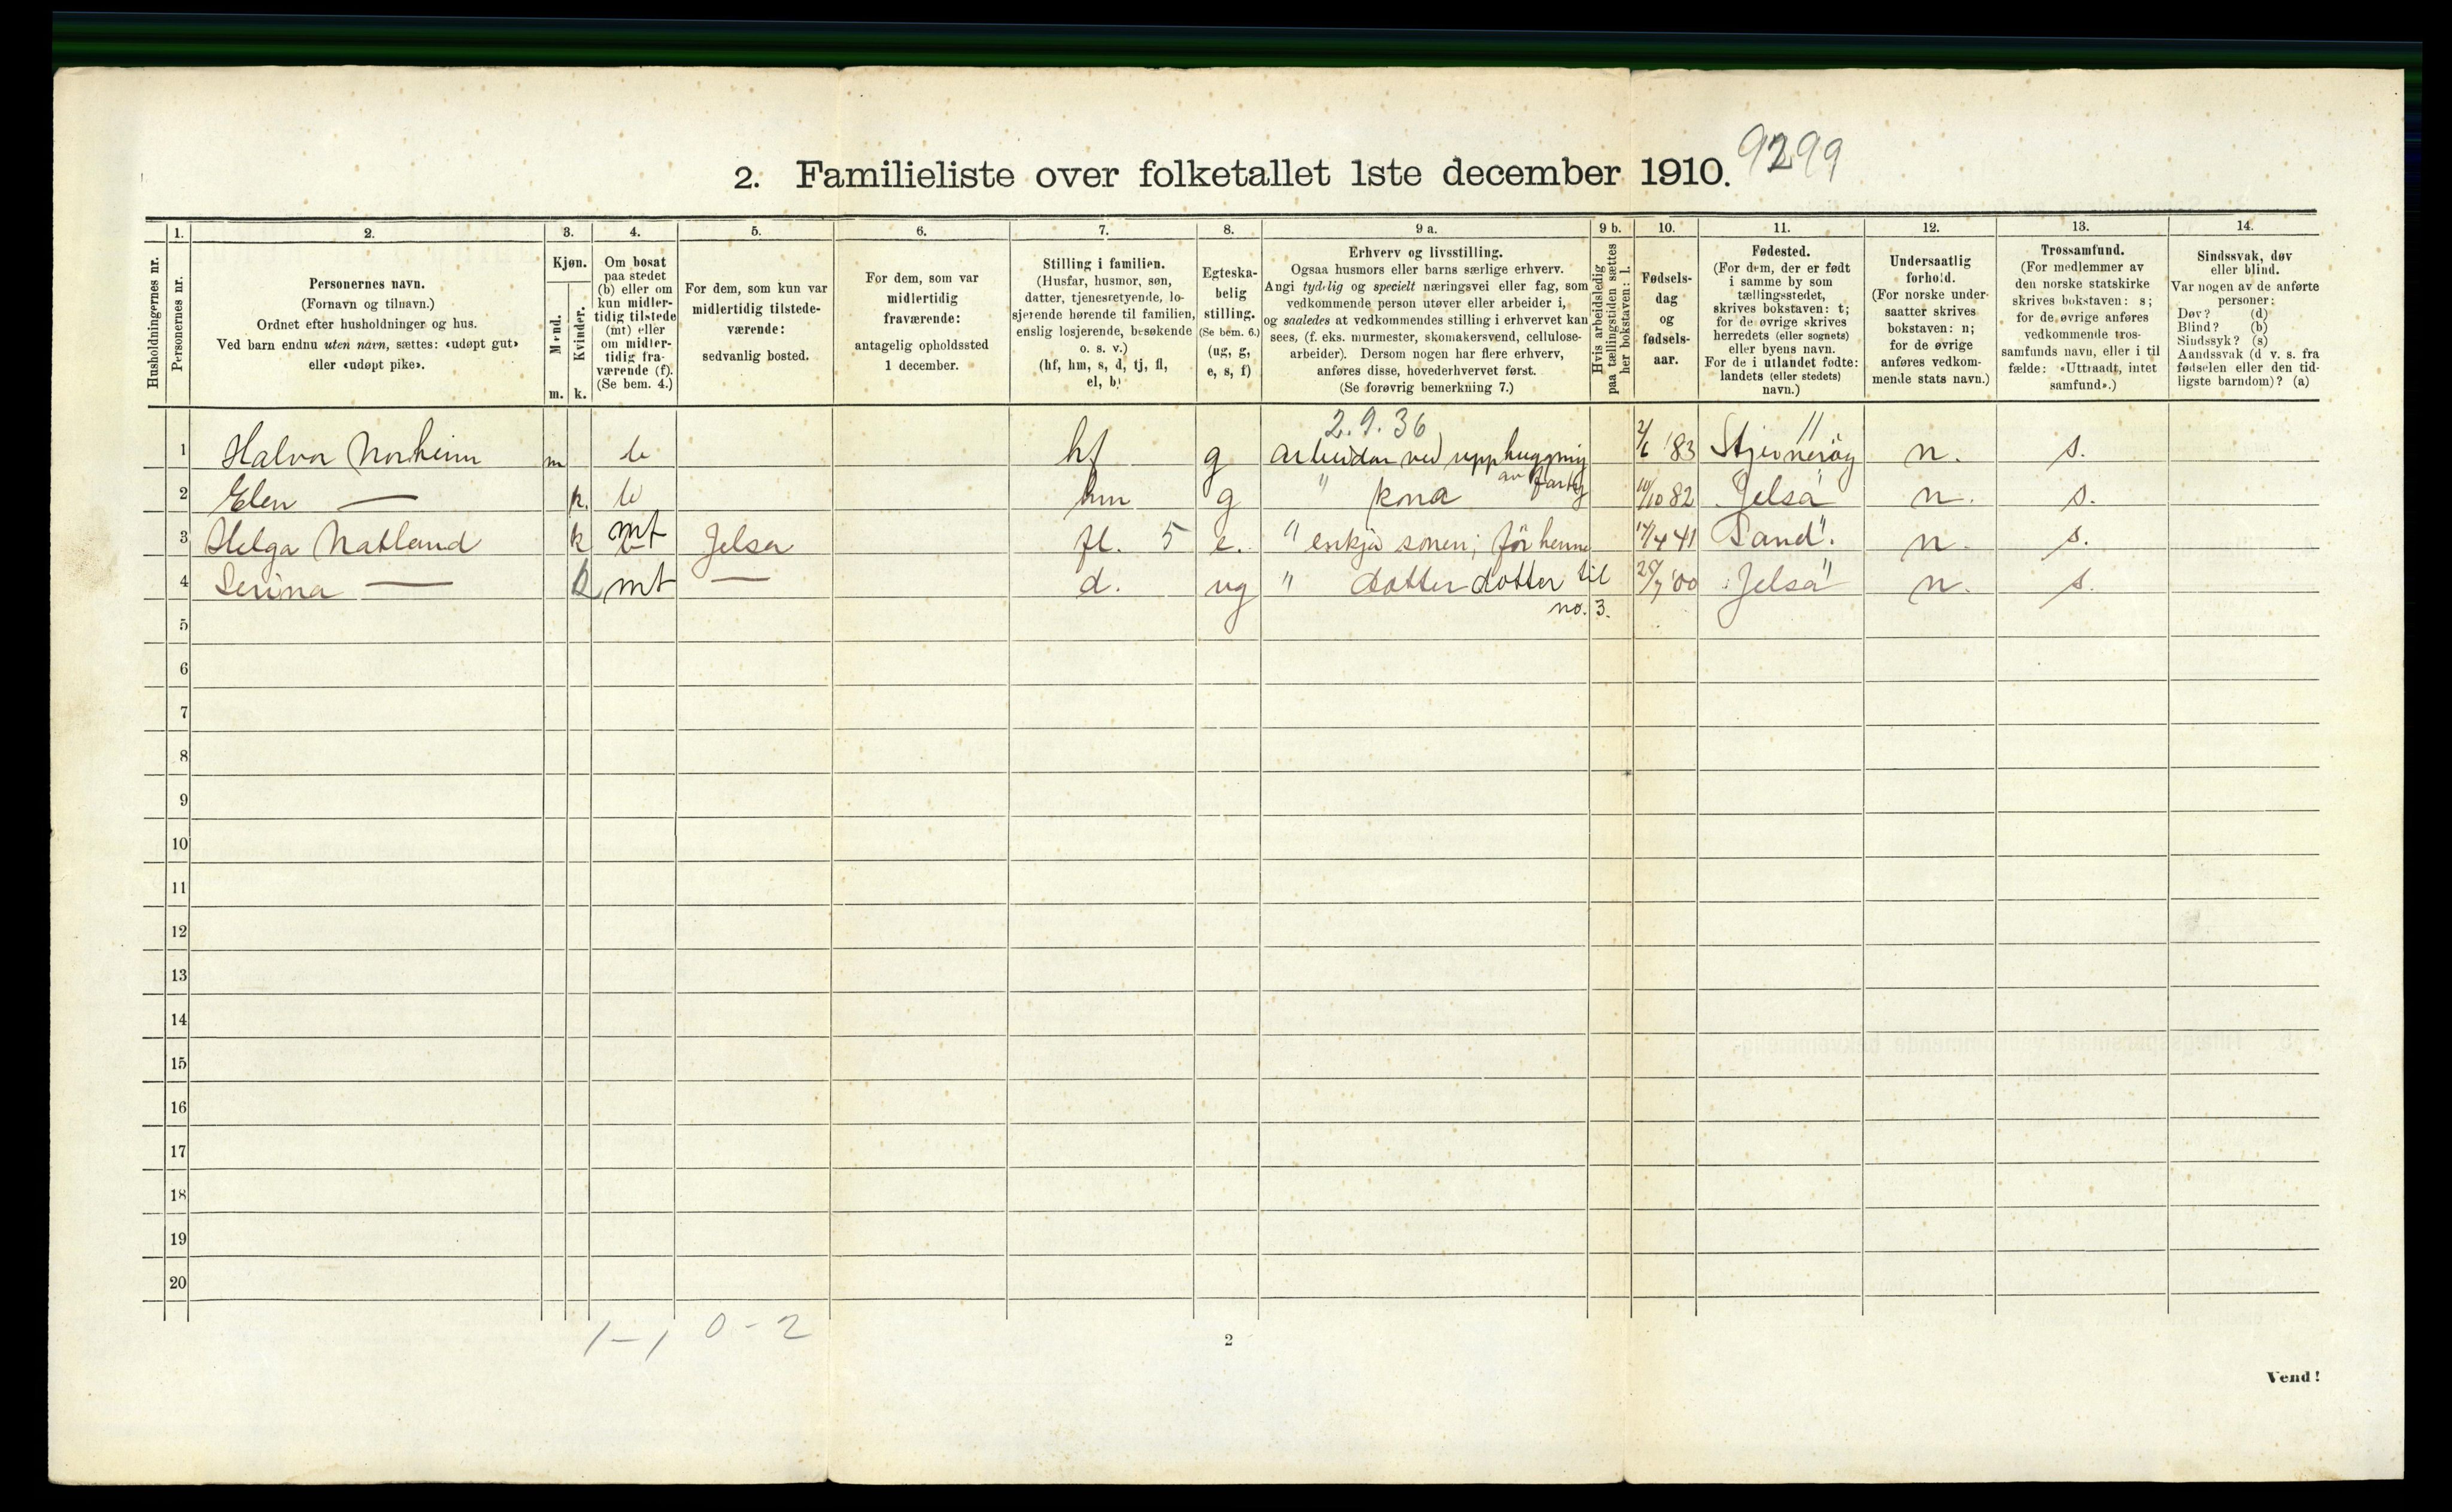 2. Familieliste over folketallet 1ste december 1910. 9299
1. 2. 3. 4. 5. 6. 7. 8. 9 a. 9 b. 10. 11. 12. 13. 14.
Husholdningernes nr.
Personernes nr.
Personernes navn.
(Fornavn og tilnavn.)
Ordnet efter husholdninger og hus.
Ved barn endnu uten navn, sættes: «udøpt gut»
eller «udøpt pike».
Kjøn.
Mænd.
Kvinder.
m. k.
Om bosat
paa stedet
(b) eller om
kun midler-
tidig tilstede
(mt) eller
om midler-
tidig fra-
værende (f).
(Se bem. 4.)
For dem, som kun var
midlertidig tilstede-
værende:
sedvanlig bosted.
For dem, som var
midlertidig
fraværende:
antagelig opholdssted
1 december.
Stilling i familien.
(Husfar, husmor, søn,
datter, tjenestetyende, lo-
sjerende hørende til familien,
enslig losjerende, besøkende
o. s. v.)
(hf, hm, s, d, tj, fl,
el, b)
Egteska-
belig
stilling.
(Se bem. 6.)
(ug, g,
e, s, f)
Erhverv og livsstilling.
Ogsaa husmors eller barns særlige erhverv.
Angi tydelig og specielt næringsvei eller fag, som
vedkommende person utøver eller arbeider i,
og saaledes at vedkommendes stilling i erhvervet kan
sees, (f. eks. murmester, skomakersvend, cellulose-
arbeider). Dersom nogen har flere erhverv,
anføres disse, hovederhvervet først.
(Se forøvrig bemerkning 7.)
Hvis arbeidsledig
paa tællingstiden sættes
her bokstaven: l.
Fødsels-
dag
og
fødsels-
aar.
Fødested.
(For dem, der er født
i samme by som
tællingsstedet,
skrives bokstaven: t;
for de øvrige skrives
herredets (eller sognets)
eller byens navn.
For de i utlandet fødte:
landets (eller stedets)
navn.)
Undersaatlig
forhold.
(For norske under-
saatter skrives
bokstaven: n;
for de øvrige
anføres vedkom-
mende stats navn.)
Trossamfund.
(For medlemmer av
den norske statskirke
skrives bokstaven: s;
for de øvrige anføres
vedkommende tros-
samfunds navn, eller i til
fælde: «Uttraadt, intet
samfund».)
Sindssvak, døv
eller blind.
Var nogen av de anførte
personer:
Døv? (d)
Blind? (b)
Sindssyk? (s)
Aandssvak (d v. s. fra
fødselen eller den tid-
ligste barndom)? (a)
2.9.36
1 Halvor Norheim m b hf g arbeidar ved upphugging 2/6 '83 Stjernerøy n. s.
av fartøy
2 Elen — k. b hm g " kona 10/10 82 Jelsa n. s.
3 Helga Natland k mt Jelsa fl. 5 e. " enkja sonen; før henne 17/4 41 Sand. n. s.
4 Serina — k mt — d. ug " dotter dotter til 28/7 '00 Jelsa n. s.
no. 3.
5
6
7
8
9
10
11
12
13
14
15
16
17
18
19
20
1-1 0-2
2
Vend!